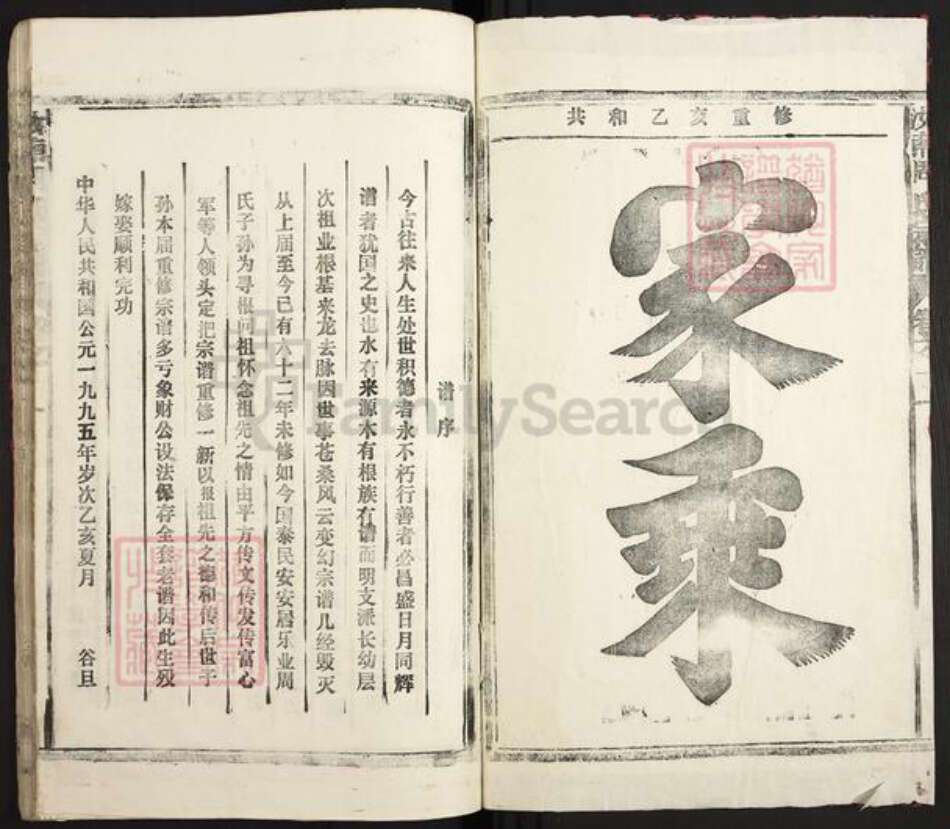 共和乙亥重修
家乘
谱序
今古往来人生处世积德者永不朽行善者必昌盛日月同辉
谱者犹国之史也水有来源木有根族有谱而明支派长幼层
次祖业根基来龙去脉因世事苍桑风云变幻宗谱几经毁灭
从上届至今已有六十二年未修如今国泰民安安居乐业周
氏子孙为寻根问祖怀念祖先之情由平方传文传发传富心
军等人领头定把宗谱重修一新以报祖先之德和传后世于
孙本届重修宗谱多亏象财公设法保存全套老谱因此生殁
嫁娶顺利完功
中华人民共和国公元一九九五年岁次乙亥夏月 谷旦
FamilySearch